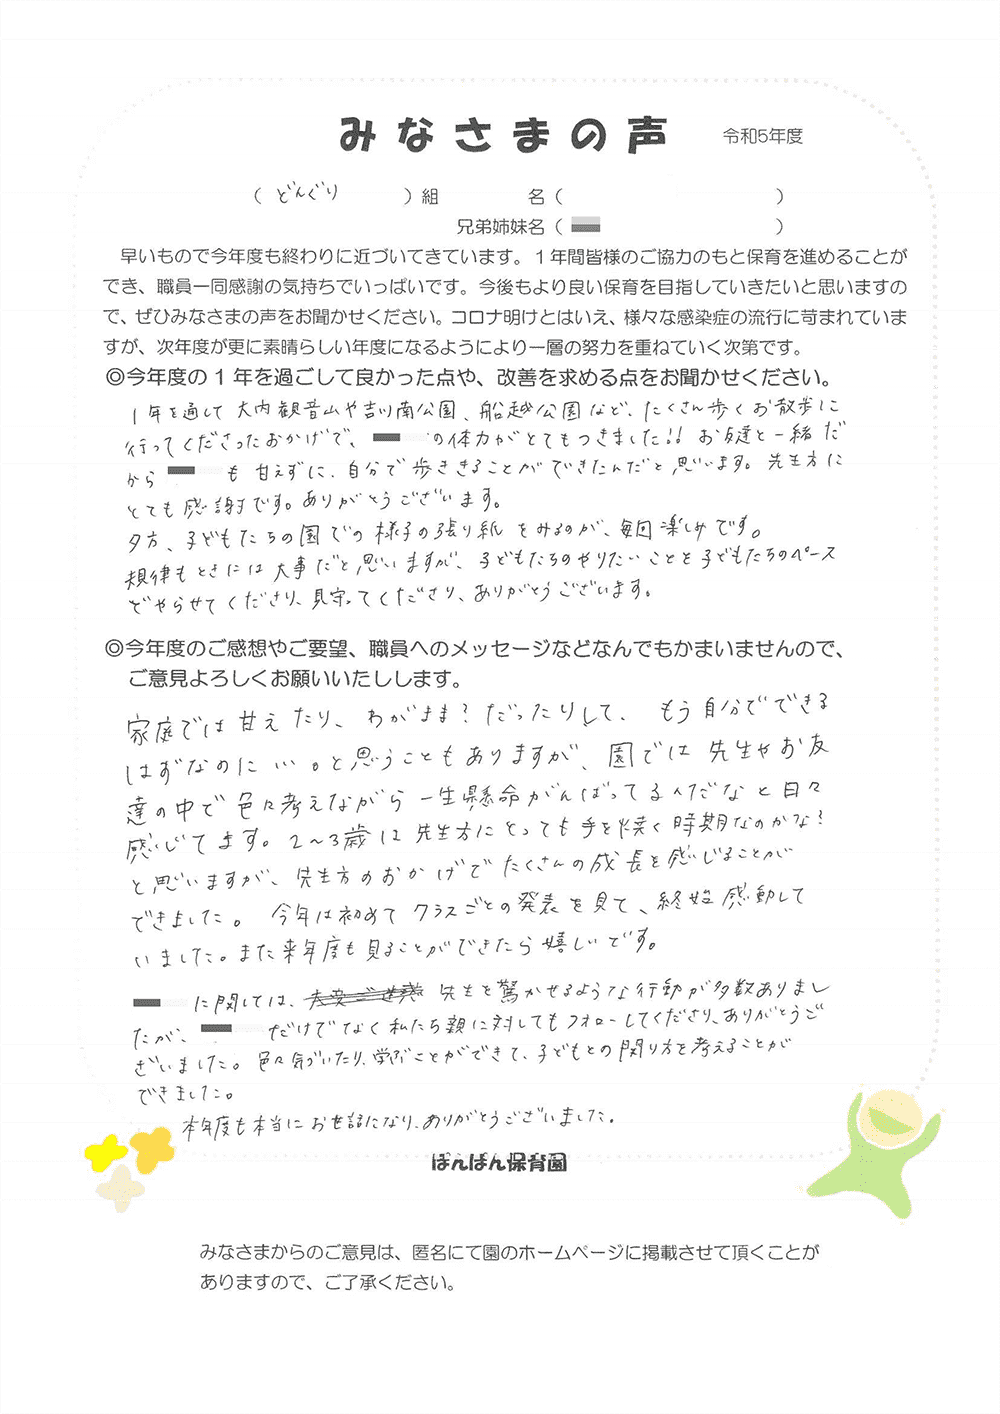 みなさまの声 令和5年度
（ どんぐり ）組 名（ ）
兄弟姉妹名（ ）
早いもので今年度も終わりに近づいてきています。１年間皆様のご協力のもと保育を進めることが
でき、職員一同感謝の気持ちでいっぱいです。今後もより良い保育を目指していきたいと思いますの
で、ぜひみなさまの声をお聞かせください。コロナ明けとはいえ、様々な感染症の流行に苛まれていま
すが、次年度が更に素晴らしい年度になるようにより一層の努力を重ねていく次第です。
◎今年度の１年を過ごして良かった点や、改善を求める点をお聞かせください。
1年を通して大内観音山や吉川南公園、船越公園など、たくさん歩くお散歩に
行ってくださったおかげで、 の体力がとてもつきました!! お友達と一緒だ
から も甘えずに、自分で歩ききることができたんだと思います。先生方に
とても感謝です。ありがとうございます。
夕方、子どもたちの園での様子の張り紙をみるのが、毎回楽しみです。
規律もときには大事だと思いますが、子どもたちのやりたいことを子どもたちのペース
でやらせてくださり、見守ってくださり、ありがとうございます。
◎今年度のご感想やご要望、職員へのメッセージなどなんでもかまいませんので、
ご意見よろしくお願いいたしします。
家庭では甘えたり、わがまま？だったりして、もう自分でできる
はずなのに…。と思うこともありますが、園では先生やお友
達の中で色々考えながら一生懸命がんばってるんだなと日々
感じてます。2〜3歳は先生方にとっても手を焼く時期なのかな？
と思いますが、先生方のおかげでたくさんの成長を感じることが
できました。今年は初めてクラスごとの発表を見て、終始感動して
いました。また来年度も見ることができたら嬉しいです。
に関しては、 先生を驚かせるような行動が多数ありまし
たが、 だけでなく私たち親に対してもフォローしてくださり、ありがとうご
ざいました。色々気づいたり、学ぶことができて、子どもとの関り方を考えることが
できました。
本年度も本当にお世話になり、ありがとうございました。
ぽんぽん保育園
みなさまからのご意見は、匿名にて園のホームページに掲載させて頂くことが
ありますので、ご了承ください。